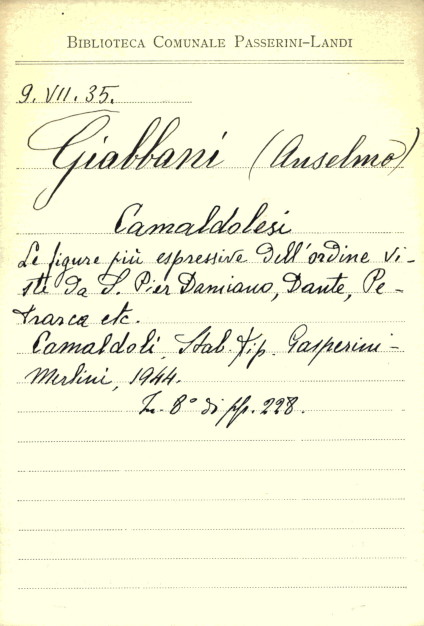 BIBLIOTECA COMUNALE PASSERINI-LANDI
9. VII. 35.
Giabbani (Anselmo)
Camaldolesi
Le figure più espressive dell'ordine vi-
ste da S. Pier Damiano, Dante, Pe-
trarca etc.
Camaldoli, Stab. tip. Gasperini-
Merlini, 1944.
In- 8° di pp. 228.